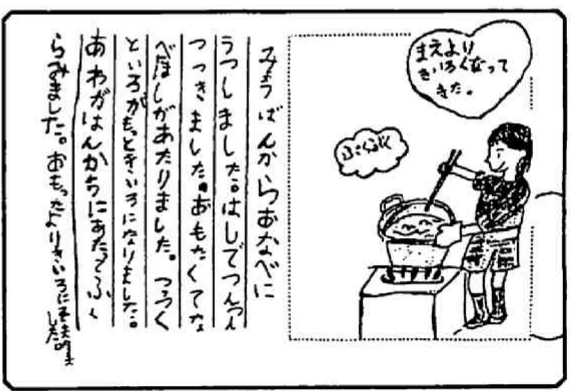 まえより
きいろくなって
きた。
ぶくぶく
みょうばんからおなべに
うつしました。はしでつんつん
つつきました。おもたくてな
べ があたりました。つつく
といろがもっときいろになりました。
あわがはんかちにあたってふく
らみました。おもったよりきいろに